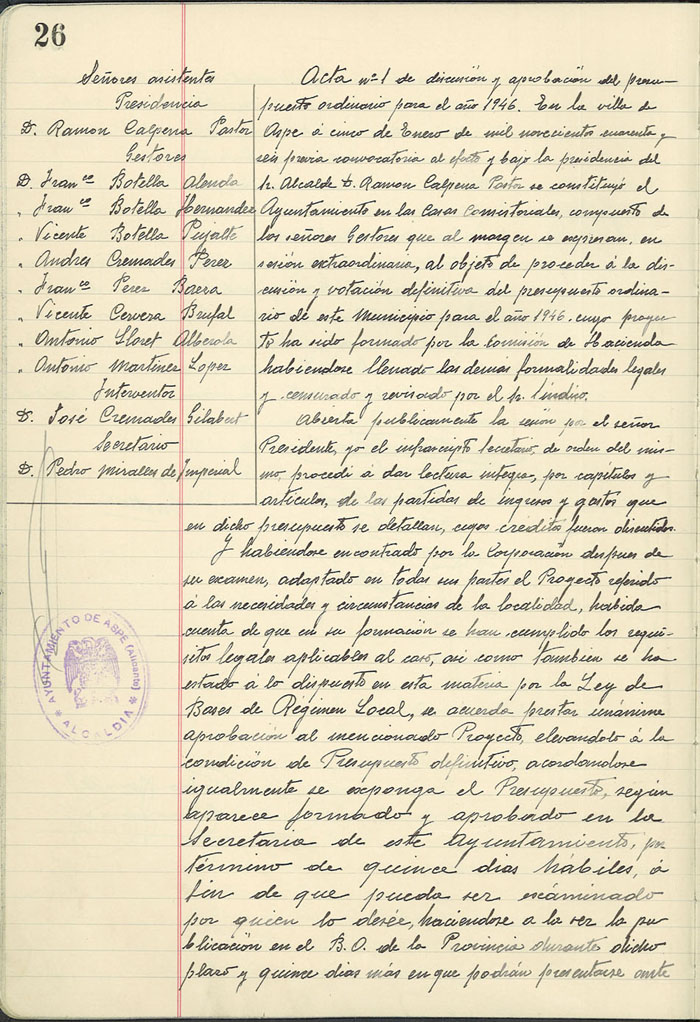 26
Señores asistentes
Presidencia
D. Ramon Calpena Pastor
Gestores
D. Franco Botella Alenda
" Franco Botella Hernandez
" Vicente Botella Pujalte
" Andres Cremades Perez
" Franco Perez Boera
" Vicente Cervera Brufal
" Antonio Lloret Alberola
" Antonio Martinez Lopez
Interventor
D. José Cremades Gilabert
Secretario
D. Pedro Miralles de Imperial
Acta nº 1 de discusión y aprobación del presu-
puesto ordinario para el año 1946. En la villa de
Aspe á cinco de Enero de mil novecientos cuarenta y
seis previa convocatoria al efecto y bajo la presidencia del
Sr. Alcalde D. Ramon Calpena Pastor se constituyó el
Ayuntamiento en las Casas Consistoriales, compuesto de
los señores Gestores que al margen se expresan, en
sesión extraordinaria, al objeto de proceder á la dis-
cusión y votación definitiva del presupuesto ordina-
rio de este Municipio para el año 1946. cuyo proyec-
to ha sido formado por la Comisión de Hacienda
habiendose llenado las demás formalidades legales
y censurado y revisado por el Sr. Síndico.
Abierta publicamente la sesión por el señor
Presidente, yo el infrascripto Secretario de orden del mis-
mo, procedi á dar lectura integra, por capitulos y
articulos, de las partidas de ingresos y gastos que
en dicho presupuesto se detallan, cuyos créditos fueron discutidos.
Y habiendose encontrado por la Corporación despues de
su examen, adaptado en todas sus partes el Proyecto referido
á las necesidades y circunstancias de la localidad, habida
cuenta de que en su formación se han cumplido los requi-
sitos legales aplicables al caso, asi como tambien se ha
estado á lo dispuesto en esta materia por la Ley de
Bases de Regimen Local, se acuerda prestar unánime
aprobación al mencionado Proyecto, elevandolo á la
condición de Presupuesto definitivo, acordandose
igualmente se exponga el Presupuesto, según
aparece formado y aprobado en la
Secretaria de este Ayuntamiento, por
término de quince dias hábiles, á
fin de que pueda ser exáminado
por quien lo desée, haciendose a la vez la pu-
blicación en el B.O. de la Provincia durante dicho
plazo y quince dias más en que podrán presentarse ante
AYUNTAMIENTO DE ASPE (Alicante)
* ALCALDIA *